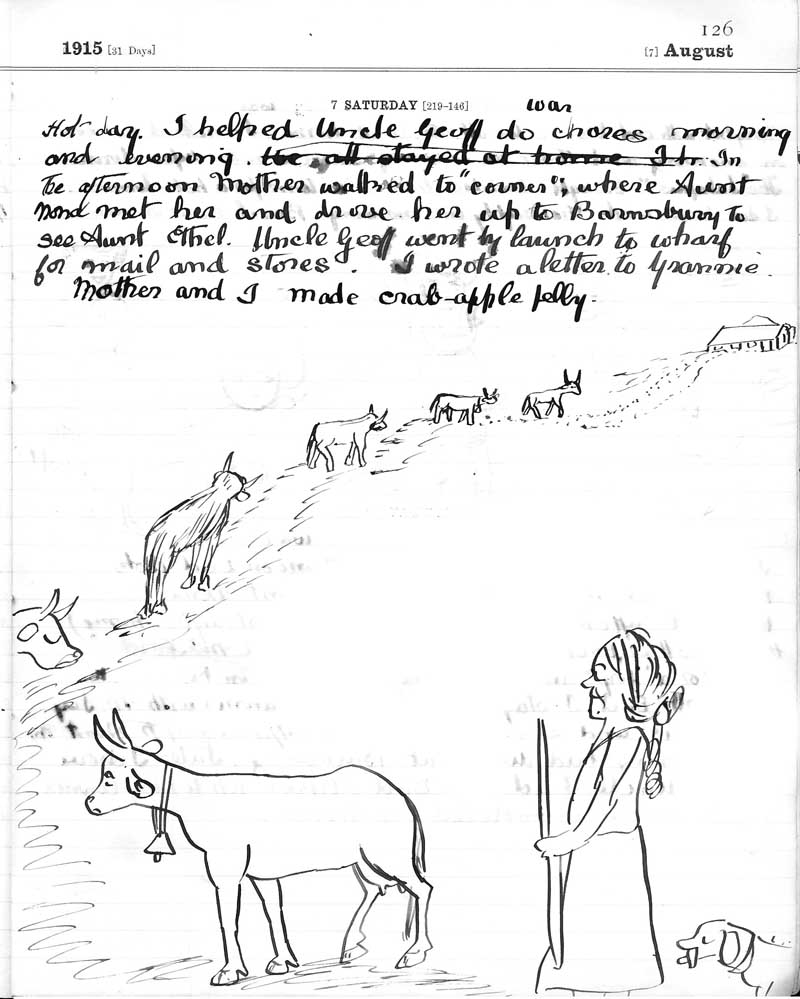 126
1915 [31 Days]
[7] August
7 SATURDAY [219-146]
war
Hot day. I helped Uncle Geoff do chores morning
and evening. We all stayed at home In
the afternoon Mother walked to "corner"; where Aunt
Nona met her and drove her up to Barnsbury to
see Aunt Ethel. Uncle Geoff went by launch to wharf
for mail and stores. I wrote a letter to Grannie.
Mother and I made crab-apple jelly.